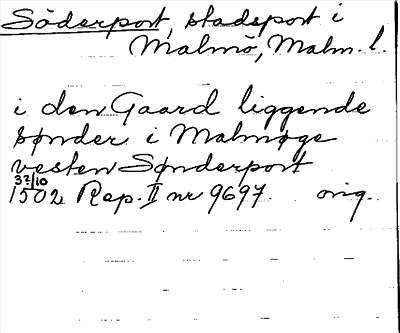 Söderport, stadsport i
Malmö, Malm. l.
i den Gaard liggende
sønder i Malmøge
vesten Sønderport
3?/10
1502 Rep. II nr 9697. orig.